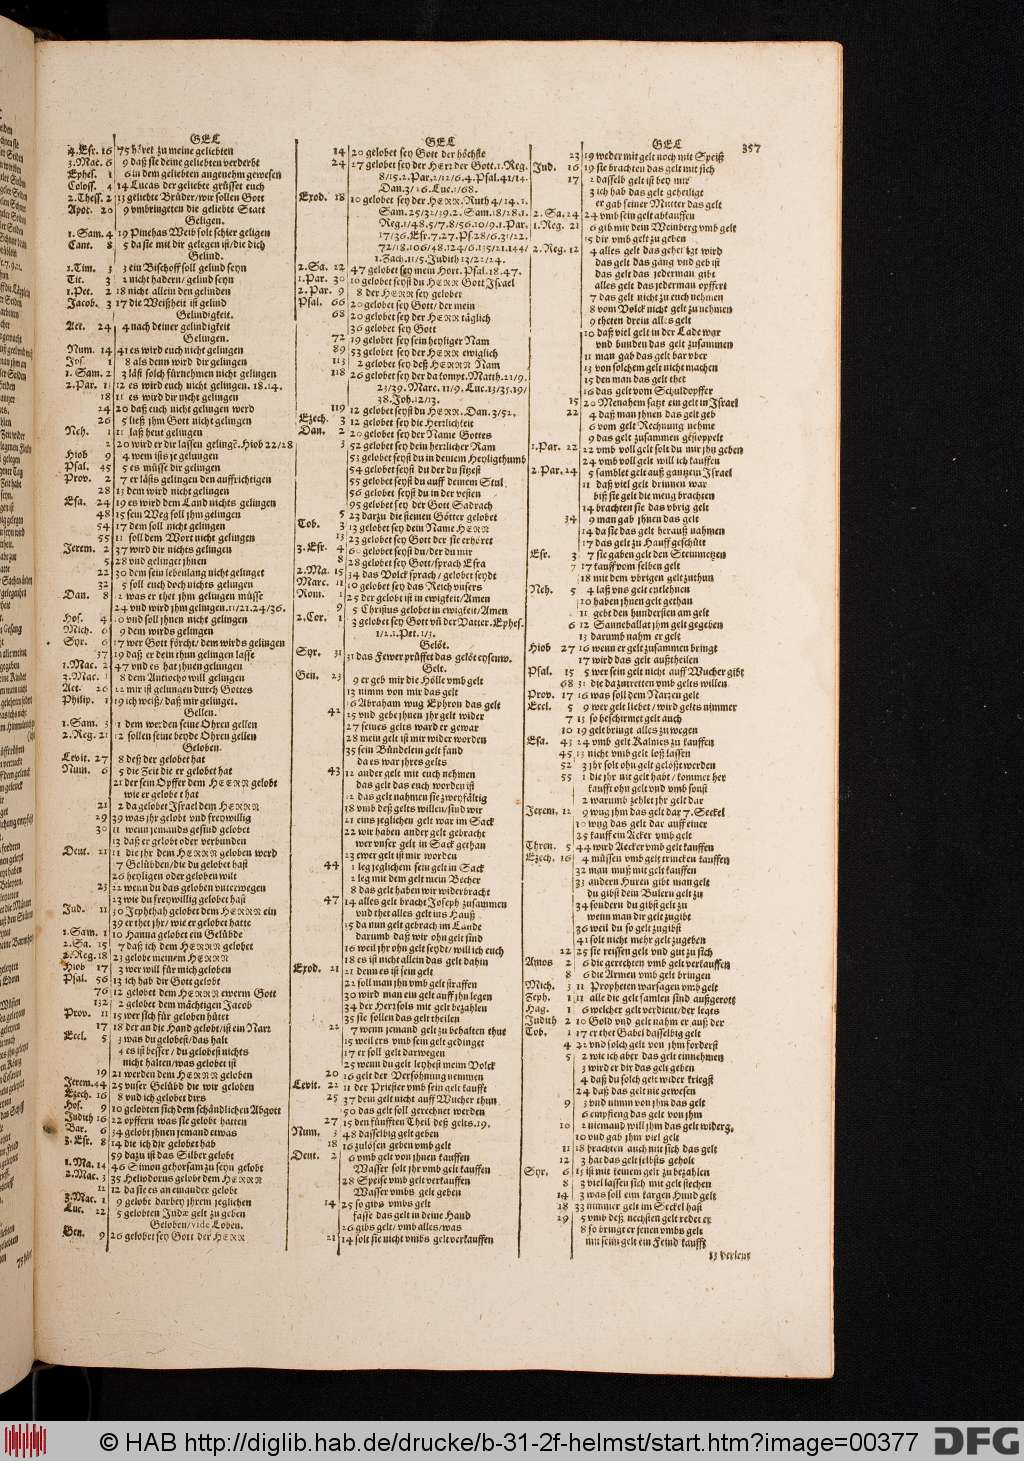 GEL
4. Esr. 16 75 höret zu meine geliebten
3. Mac. 6 9 daß sie deine geliebten verderbt
Ephes. 1 6 in dem geliebten angenehm gewesen
Coloss. 4 14 Lucas der geliebte grüsset euch
2. Thess. 2 13 geliebte Brüder/wir sollen Gott
Apoc. 20 9 vmbringeten die geliebte Statt
Geligen.
1. Sam. 4 19 Pinehas Weib solt schier geligen
Cant. 8 5 da sie mit dir gelegen ist/die dich
Gelind.
1. Tim. 3 3 ein Bischoff soll gelind seyn
Tit. 3 2 nicht hadern/gelind seyn
1. Pet. 2 18 nicht allein den gelinden
Jacob. 3 17 die Weißheit ist gelind
Gelindigkeit.
Act. 24 4 nach deiner gelindigkeit
Gelingen.
Num. 14 41 es wird euch nicht gelingen
Jos. 1 8 als denn wird dir gelingen
1. Sam. 2 3 läß solch fürnemen nicht gelingen
2. Par. 1 12 es wird euch nicht gelingen. 18.14.
18 11 es wird dir nicht gelingen
24 20 daß euch nicht gelingen werd
26 5 ließ jhm Gott nicht gelingen
Neh. 1 11 laß heut gelingen
2 20 wird er dir lassen gelingẽ. Hiob 22/28
Hiob 9 4 wem ists je gelungen
Psal. 45 5 es müsse dir gelingen
Prov. 2 7 er läßts gelingen den auffrichtigen
28 13 dem wird nicht gelingen
Esa. 24 19 es wird dem Land nichts gelingen
48 15 sein Weg soll jhm gelingen
54 17 dem soll nicht gelingen
55 11 soll dem Wort nicht gelingen
Jerem. 2 37 wird dir nichts gelingen
5 28 vnd gelinget jhnen
22 30 dem sein lebenlang nicht gelinget
32 5 soll euch doch nichts gelingen
Dan. 8 2 was er thet jhm gelingen müsse
24 vnd wird jhm gelingen. 11/21.24/36.
Hos. 4 10 vnd soll jhnen nicht gelingen
Mich. 6 9 dem wirds gelingen
Syr. 6 17 wer Gott förcht/dem wirds gelingen
37 19 daß er dein thun gelingen lasse
1. Mac. 2 47 vnd es hat jhnen gelungen
3. Mac. 1 8 dem Antiocho will gelingen
Act. 26 22 mir ist gelungen durch Gottes
Philip. 1 19 ich weiß/daß mir gelinget.
Gellen.
1. Sam. 3 1 dem werden seine Ohren gellen
2. Reg. 21 12 sollen seine beyde Ohren gellen
Geloben.
Levit. 27 8 deß der gelobet hat
Num. 6 5 die Zeit die er gelobet hat
21 der sein Opffer dem HEERN gelobt
wie er gelobet hat
21 2 da gelobet Israel dem HERRN
29 39 was jhr gelobt vnd freywillig
30 11 wenn jemands gesind gelobet
13 daß er gelobt oder verbunden
Deut. 21 11 die jhr dem HERRN geloben werd
7 Gelübden/die du gelobet hast
26 heyligen oder geloben wilt
23 22 wenn du das geloben vnterwegen
23 wie du freywillig gelobet hast
Jud. 11 30 Jephthah gelobet dem HERRN ein
39 er thet jhr/wie er gelobet hatte
1. Sam. 1 10 Hanna gelobet ein Gelübde
2. Sa. 15 7 daß ich dem HERRN gelobet
2. Reg. 18 23 gelobe meinem HERRN
Hiob 17 3 wer will für mich geloben
Psal. 56 13 ich hab dir Gott gelobt
76 12 gelobet dem HERRN ewerm Gott
132 2 gelobet dem mächtigen Jacob
Prov. 11 15 wer sich für geloben hütet
17 18 der an die Hand gelobt/ist ein Narr
Eccl. 5 3 was du gelobest/das halt
4 es ist besser/du gelobest nichts
nicht halten/was gelobet ist
19 21 werden dem HERRN geloben
Jerem. 44 25 vnser Gelübd die wir geloben
Ezech. 16 8 vnd ich gelobet dirs
Hos. 9 10 gelobten sich dem schändlichen Abgott
Judith 16 22 opffern was sie gelobt hatten
Bar. 6 34 gelobt jhnen jemand etwas
3. Esr. 8 14 die ich dir gelobet hab
59 dazu ist das Silber gelobt
1. Ma. 14 46 Simon gehorsam zu seyn gelobt
2. Mac. 3 35 Heliodorus gelobt dem HERRN
12 12 da sie es an einander gelobt
3. Mac. 1 9 gelobt darbey jhrem jeglichen
Luc. 22 5 gelobten Judæ gelt zu geben
Geloben/vide Loben.
Gen. 9 26 gelobet sey Gott der HERR
GEL
14 20 gelobet sey Gott der höchste
24 27 gelobet sey der HERR der Gott. 1. Reg.
8/15. 2. Par. 2/12/6. 4. Psal. 41/14.
Dan. 3/26. Luc. 1/68.
Exod. 18 10 gelobet sey der HERR. Ruth 4/14. 1.
Sam. 25/32/39. 2. Sam. 18/28. 1.
Reg. 1/48. 5/7. 8/56. 10/9. 1. Par.
17/36. Esr. 7. 27. Ps 28/6. 31/22.
72/18. 106/48. 124/6. 135/21. 144/
1. Zach. 11/5. Judith 13/22/24.
2. Sa. 22 47 gelobet sey mein Hort. Psal. 18. 47.
1. Par. 30 10 gelobet seystu HERR Gott Israel
2. Par. 9 8 der HERR sey gelobet
Psal. 66 20 gelobet sey Gott/der mein
68 20 gelobet sey der HERR täglich
36 gelobet sey Gott
72 19 gelobet sey sein heyliger Nam
89 53 gelobet sey der HERR ewiglich
113 2 gelobet sey deß HERRN Nam
118 26 gelobet sey der da kompt. Matth. 21/9.
23/39. Marc. 11/9. Luc. 13/35. 19/
38. Joh. 12/13.
119 12 gelobet seystu HERR. Dan. 3/52.
Ezech. 3 12 gelobet sey die Herrlichkeit
Dan. 2 20 gelobet sey der Name Gottes
3 52 gelobet sey dein herrlicher Nam
53 gelobet seystu in deinem Heyligthumb
54 gelobet seystu der du sitzest
55 gelobet seystu auff deinem Stul
56 gelobet seystu in der vesten
95 gelobet sey der Gott Sadrach
5 23 darzu die steinen Götter gelobet
Tob. 3 13 gelobet sey dein Name HERR
13 23 gelobet sey Gott der sie erhöret
3. Esr. 4 60 gelobet seystu/der du mir
8 28 gelobet sey Gott/sprach Esra
2. Ma. 15 34 das Volck sprach/gelobet seystu
Marc. 11 10 gelobet sey das Reich vnsers
Rom. 1 25 der gelobt ist in ewigkeit/Amen
9 5 Christus gelobet in ewigkeit/Amen
2. Cor. 1 3 gelobet sey Gott vñ der Vatter. Ephes.
1/2. 1. Pet. 1/3.
Gelöt.
Syr. 31 31 das Fewer prüffet das gelöt eysenw.
Gelt.
Gen. 23 9 er geb mir die Hölle vmb gelt
13 nimm von mir das gelt
16 Abraham wug Ephron das gelt
42 25 vnd gebe jhnen jhr gelt wider
27 seines gelts ward er gewar
28 mein gelt ist mir wider worden
35 sein Bündelein gelt fand
da es war jhres gelts
43 12 ander gelt mit euch nehmen
das gelt das euch worden ist
12 das gelt nahmen sie zweyfältig
18 vmb deß gelts willen/sind wir
21 eins jeglichen gelt war im Sack
22 wir haben ander gelt gebracht
wer vnser gelt in Sack gethan
23 ewer gelt ist mir worden
44 1 leg jeglichem sein gelt in Sack
2 leg mit dem gelt mein Becher
8 das gelt haben wir widerbracht
47 14 alles gelt bracht Joseph zusammen
vnd thet alles gelt ins Hauß
15 da nun gelt gebrach im Lande
darumb daß wir ohn gelt sind
16 weil jhr ohn gelt seydt/will ich euch
18 es ist nicht allein das gelt dahin
Exod. 21 21 denn es ist sein gelt
22 soll man jhn vmb gelt straffen
30 wird man ein gelt auff jhn legen
34 der Herr sols mit gelt bezahlen
35 sie sollen das gelt theilen
22 7 wenn jemand gelt zu behalten thut
15 weil ers vmb sein gelt gedinget
17 er soll gelt darwegen
25 wenn du gelt leyhest meim Volck
20 16 gelt der Versöhnung nemmen
Levit. 22 11 der Priester vmb sein gelt kaufft
25 37 dein gelt nicht auff Wucher thun
50 das gelt soll gerechnet werden
27 15 den fünfften Theil deß gelts. 19.
Num. 3 48 dasselbig gelt geben
18 16 zulösen geben vmb gelt
Deut. 2 6 vmb gelt von jhnen kauffen
Wasser solt jhr vmb gelt kauffen
28 Speise vmb gelt verkauffen
Wasser vmbs gelt geben
14 25 so gibs vmbs gelt
fasse das gelt in deine Hand
26 gibs gelt/vmb alles/was
21 14 solt sie nicht vmbs gelt verkauffen
GEL 357
23 19 weder mit gelt noch mit Speiß
Jud. 16 19 sie brachten das gelt mit sich
17 2 dasselb gelt ist bey mir
3 ich hab das gelt geheiligt
er gab seiner Mutter das gelt
2. Sa. 24 24 vmb sein gelt abkauffen
1. Reg. 21 6 gib mir dein Weinberg vmb gelt
15 dir vmb gelt zu geben
2. Reg. 12 4 alles gelt das geheiligt wird
das gelt das gäng vnd geb ist
das gelt das jederman gibt
alles gelt das jederman opffert
7 das gelt nicht zu euch nehmen
8 vom Volck nicht gelt zu nehmen
9 theten drein alles gelt
10 daß viel gelt in der Lade war
vnd bunden das gelt zusammen
11 man gab das gelt bar vber
13 von solchem gelt nicht machen
15 den man das gelt thet
16 das gelt vom Schuldopffer
15 20 Menahem satzt ein gelt in Israel
22 4 daß man jhnen das gelt geb
6 vom gelt Rechnung nehme
9 das gelt zusammen gestoppelt
1. Par. 22 22 vmb voll gelt solt du mir jhn geben
24 vmb voll gelt will ich kauffen
2. Par. 24 5 samblet gelt auß gantzem Israel
11 daß viel gelt drinnen war
biß sie gelt die meng brachten
14 brachten sie das vbrig gelt
34 9 man gab jhnen das gelt
14 da sie das gelt herauß nahmen
17 das gelt zu Hauff geschütt
Esr. 3 7 sie gaben gelt den Steinmetzen
7 17 kauff vom selben gelt
18 mit dem vbrigen gelt zuthun
Neh. 5 4 laß vns gelt entlehnen
10 haben jhnen gelt gethan
11 gebt den hundersten am gelt
6 12 Sanneballat jhm gelt gegeben
13 darumb nahm er gelt
Hiob 27 16 wenn er gelt zusammen bringt
17 wird das gelt außtheilen
Psal. 15 5 wer sein gelt nicht auff Wucher gibt
68 31 die da zutretten vmb gelts willen
Prov. 17 16 was soll dem Narzen gelt
Eccl. 5 9 wer gelt liebet/wird gelts nimmer
7 13 so beschirmet gelt auch
10 19 gelt bringt alles zu wegen
Esa. 43 24 vmb gelt Kalmes zu kauffen
45 13 nicht vmb gelt loß lassen
52 3 jhr solt ohn gelt gelößt werden
55 1 die jhr nit gelt habt/kommet her
kaufft ohn gelt vnd vmb sonst
2 warumb zehlet jhr gelt dar
Jerem. 12 9 wug jhm das gelt dar 7. Seckel
10 wug das gelt dar auff einer
25 kauff ein Acker vmb gelt
Thren. 5 44 wird Aecker vmb gelt kauffen
Ezech. 16 4 müssen vmb gelt trincken kauffen
32 man muß mit gelt kauffen
33 andern Huren gibt man gelt
du gibst dein Bulern gelt zu
34 sondern du gibst gelt zu
wenn man dir gelt zugibt
36 weil du so gelt zugibst
41 solt nicht mehr gelt zugeben
22 25 sie reissen gelt vnd gut zu sich
Amos 2 6 die gerechten vmb gelt verkauffen
8 6 die Armen vmb gelt bringen
Mich. 3 11 Propheten warsagen vmb gelt
Zeph. 1 11 alle die gelt samlen sind außgerott
Hag. 1 6 welcher gelt verdient/der legts
Judith 2 10 Gold vnd gelt nahm er auß der
Tob. 1 17 er thet Gabel dasselbig gelt
4 22 vnd solch gelt von jhm forderst
5 2 wie ich aber das gelt einnehmen
3 wird er dir das gelt geben
4 daß du solch gelt wider kriegst
24 daß das gelt nie gewesen
9 3 vnd nimm von jhm das gelt
6 empfieng das gelt von jhm
10 2 niemand will jhm das gelt widerg.
10 vnd gab jhm viel gelt
11 18 brachten auch mit sich das gelt
12 3 hat das gelt selbsts geholt
Syr. 6 15 ist mit keinem gelt zu bezahlen
8 3 viel lassen sich mit gelt stechen
14 3 was soll ein kargen Hund gelt
18 33 nimmer gelt im Seckel hast
29 5 vmb deß nechsten gelt redet er
8 so bringt er jenen vmbs gelt
mit seim gelt ein Feind kaufft
13 verleur
© HAB http://diglib.hab.de/drucke/b-31-2f-helmst/start.htm?image=00377
DFG